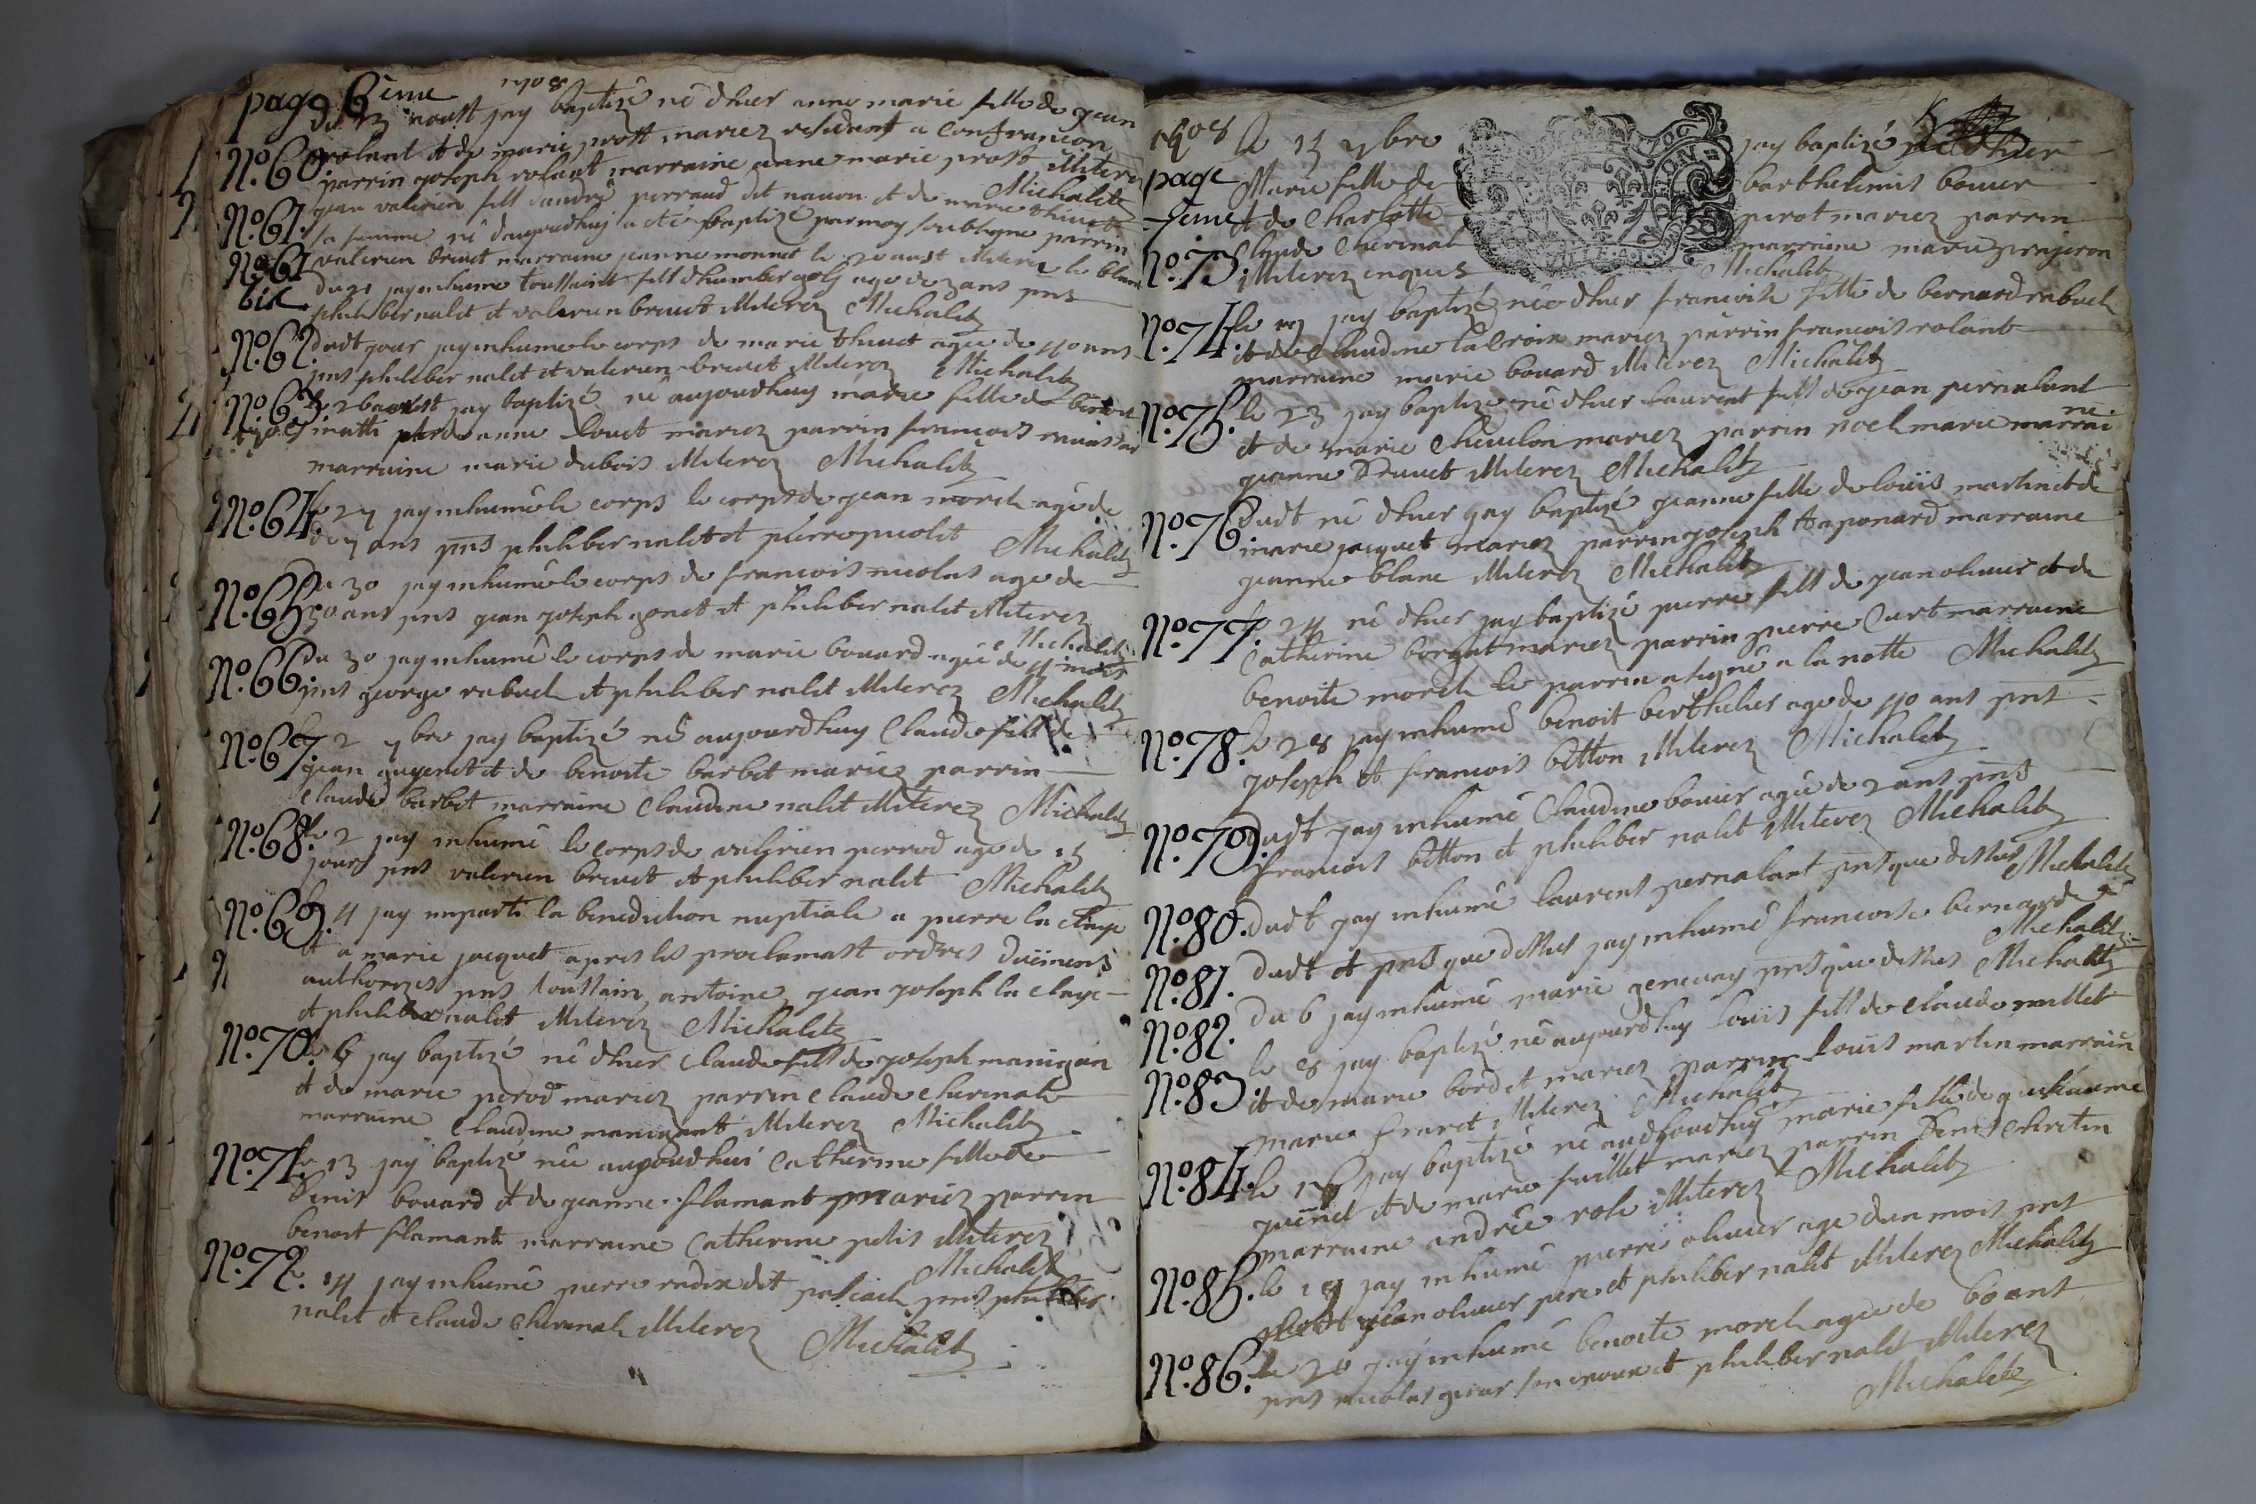 page 6eme 1708
du 13 aoust jay baptizé né dhier anne marie fille de jean
No.60. rolant et de marie prost mariez residant a Confrancon
parrin joseph rolant marraine anne marie prost illiterez
Michalitz
No.61. jean valerien fils dandré perraud dit nauon et de marie theuet
sa femme né daujourdhuy a eté baptizé par moy soubsigne parrin
valerien breuet marraine jeanne monnet le 20 aust illiterez
No.61 bis du 21 jay inhume toussaint fils dhumber goly age de 3 ans pnts
philiber nalet et valerien breuet illiterez Michalitz
No.62. dudt jour jay inhume le corps de marie theuet agée de 40 ans
pnts philiber nalet et valerien breuet illiterez Michalitz
No.63. le 26 aoust jay baptizé né aujourdhuy marie fille de benoit
de anne louet mariez parrin francois
marraine marie dubois illiterez Michalitz
No.64. le 27 jay inhumé le corps le corps de jean morel agé de
ans pnts philiber nalet et pierre picolet Michalitz
No.65. du 30 jay inhumé le corps de francois nicolas age de
50 ans pnts jean joseph gonet et philiber nalet illiterez
Michalitz
No.66. du 30 jay inhumé le corps de marie bouard agée de 4 mois
pnts george rabuel et philiber nalet illiterez Michalitz
No.67. le 2 7bre jay baptizé né aujourdhuy Claude fils de
jean guyenet et de benoite barbet mariez parrin
Claude barbet marraine Claudine nalet illiterez Michalitz
No.68. le 2 jay inhumé le corps de valerien perrod age de 15
jours pnts valerien breuet et philiber nalet Michalitz
No.69. le 4 jay imparti la benediction nuptiale a pierre la Claye
et a marie jacquet apres les proclamast ordres duëmens
authorezes pnts toussain antoine jean joseph la claye
et philiber nalet illiterez Michalitz
No.70. le 6 jay baptizé né dhier Claude fils de joseph manigan
et de marie perod mariez parrin Claude Chermale
marraine Claudine manigant illiterez Michalitz
No.71. le 13 jay baptizé née aujourdhui Catherine fille de
Denis bouard et de jeanne flamant mariez parrin
benoit flamant marraine Catherine petis illiterez
Michalitz
No.72. le 14 jay inhumé pierre radix dit pnts philiber
nalet et claude Chermale illiterez Michalitz
1708 le 15 7bre jay baptizé née dhier
page 7eme Marie fille de barthelemis bouier
et de Charlotte perot mariez parrin
No.73. Claude Chermal marraine marie
illiterez enquis Michalitz
No.74. le jay baptizé née dhier francoise fille de bernard rabuel
et de Claudine la Croix mariez parrin francois rolant
marraine marie bouard illiterez Michalitz
No.75. le 23 jay baptize né dhier laurent fils de jean pernalant
et de marie Cheuelon mariez parrin noel marie marraine
jeanne Drauet illiterez Michalitz
No.76. dudt né dhier jay baptizé jeanne fille de loüis martin et de
marie jacquet mariez parrin joseph taponard marraine
jeanne blanc illiterez Michalitz
No.77. le 24 né dhier jay baptizé pierre fils de jean oliuier et de
Catherine borgat mariez parrin pierre Curt marraine
benoite morel le parrin a signé a la notte Michalitz
No.78. le 28 jay inhumé benoit berthelier age de 40 ans pnts
joseph et francois bitton illiterez Michalitz
No.79. dudt jay inhumé Claudine bouier agée de 2 ans pnts
francois bitton et philiber nalet illiterez Michalitz
No.80. dudt jay inhumé laurent pernalant pnts que dessus Michalitz
No.81. dudt et pnts que dessus jay inhumé francoise bernarde
Michalitz
No.82. du 6 jay inhumé marie geneuay pnts que dessus Michalitz
No.83. le 8 jay baptizé né aujourdhuy Louis fils de claude millet
et de marie bordet mariez parrin Louis martin marraine
marie fraret illiterez Michalitz
No.84. le 16 jay baptizé né audjourdhuy marie fille de guillaume
guënel et de marie faillet mariez parrin Denis Chretin
marraine andrée role illiterez Michalitz
No.85. le 19 jay inhumé pierre oliuier age dun mois pnts
jean oliuier pere et philiber nalet illiterez Michalitz
No.86. le 20 jay inhumé benoite morel agée de 60 ans
pnts nicolas son et philiber nalet illiterez
Michalitz